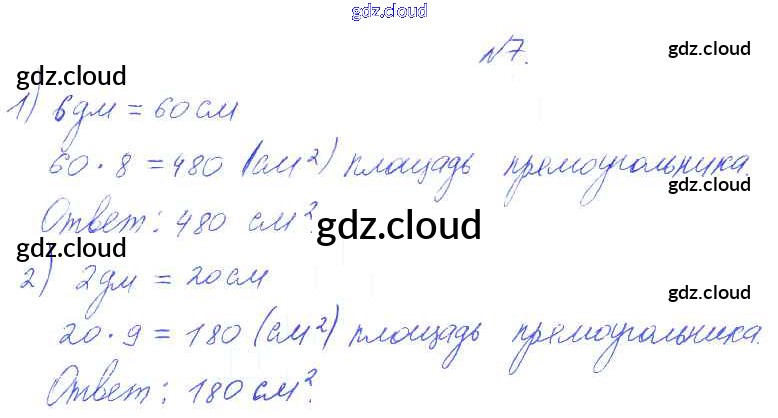 gdz.cloud
№7.
gdz.cloud
gdz.cloud
1) 6дм = 60см
60 · 8 = 480 (см²) площадь прямоугольника.
gdz.cloud
Ответ: 480 см².
gdz.cloud
gdz.cloud
2) 2дм = 20см
gdz.cloud
20 · 9 = 180 (см²) площадь прямоугольника.
gdz.cloud
Ответ: 180 см².